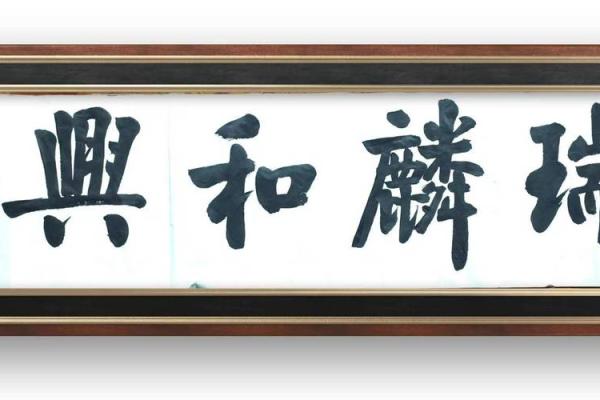 瑞麟和興